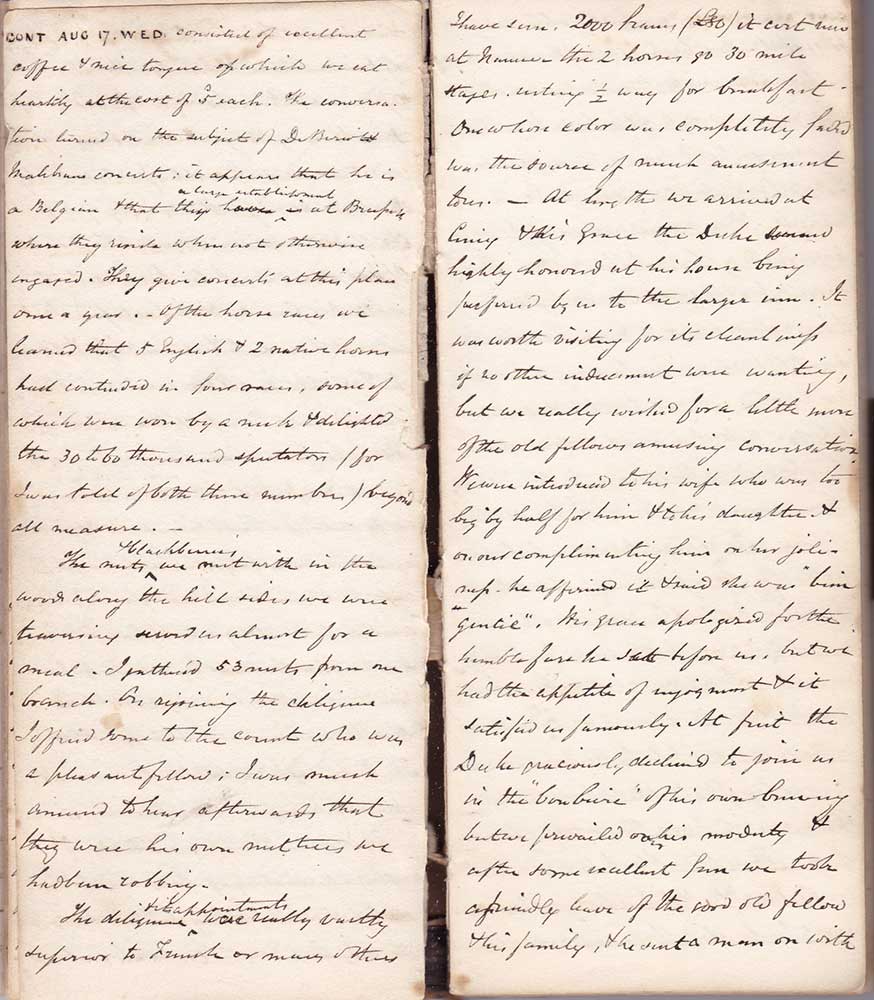 CONT AUG 17. WED. consisted of excellent
coffee & nice tongue of which we eat
heartily at the cost of 5 each. The conversa-
tion turned on the subject of De Beriot &
Malibrans concerts; it appears that he is
a large establishment
a Belgian & that they have is at Brussels
where they reside when not otherwise
engaged. They give concerts at this place
once a year. - Of the horse races we
learned that 5 English & 2 native horses
had contended in four races, some of
which were won by a neck & delighted
the 30 to 60 thousand spectators (for
I was told of both these numbers) beyond
all measure. -
& blackberries
The nuts we met with in the
woods along the hill sides we were
traversing served us almost for a
meal. I gathered 53 nuts from one
branch. On rejoining the diligence
I offered some to the count who was
a pleasant fellow; I was much
amused to hear afterwards that
they were his own nut trees we
had been robbing.
& its appointments
The diligence were really vastly
superior to French or many others
I have seen. 2000 francs (£80) it cost new
at Namur the 2 horses go 30 mile
stages. resting ½ way for breakfast.
One whose color was completely faded
was the source of much amusement
to us. - At length we arrived at
Ciney & his Grace the Duke seemed
highly honored at his house being
preferred by us to the larger inn. It
was worth visiting for its cleanliness
if no other inducement were wanting,
but we really wished for a little more
of the old fellows amusing conversation.
We were introduced to his wife who was too
big by half for him & to his daughter. &
on our complimenting him on her joli-
ness he affirmed it & said she was "bien
gentie". His grace apologized for the
humble fare he set before us, but we
had the appetite of enjoyment & it
satisfied us famously. At first the
Duke graciously declined to join us
in the "bonbiere" of his own brewing
but we prevailed on his modesty &
after some excellent fun we took
a friendly leave of the good old fellow
& his family, & he sent a man on with